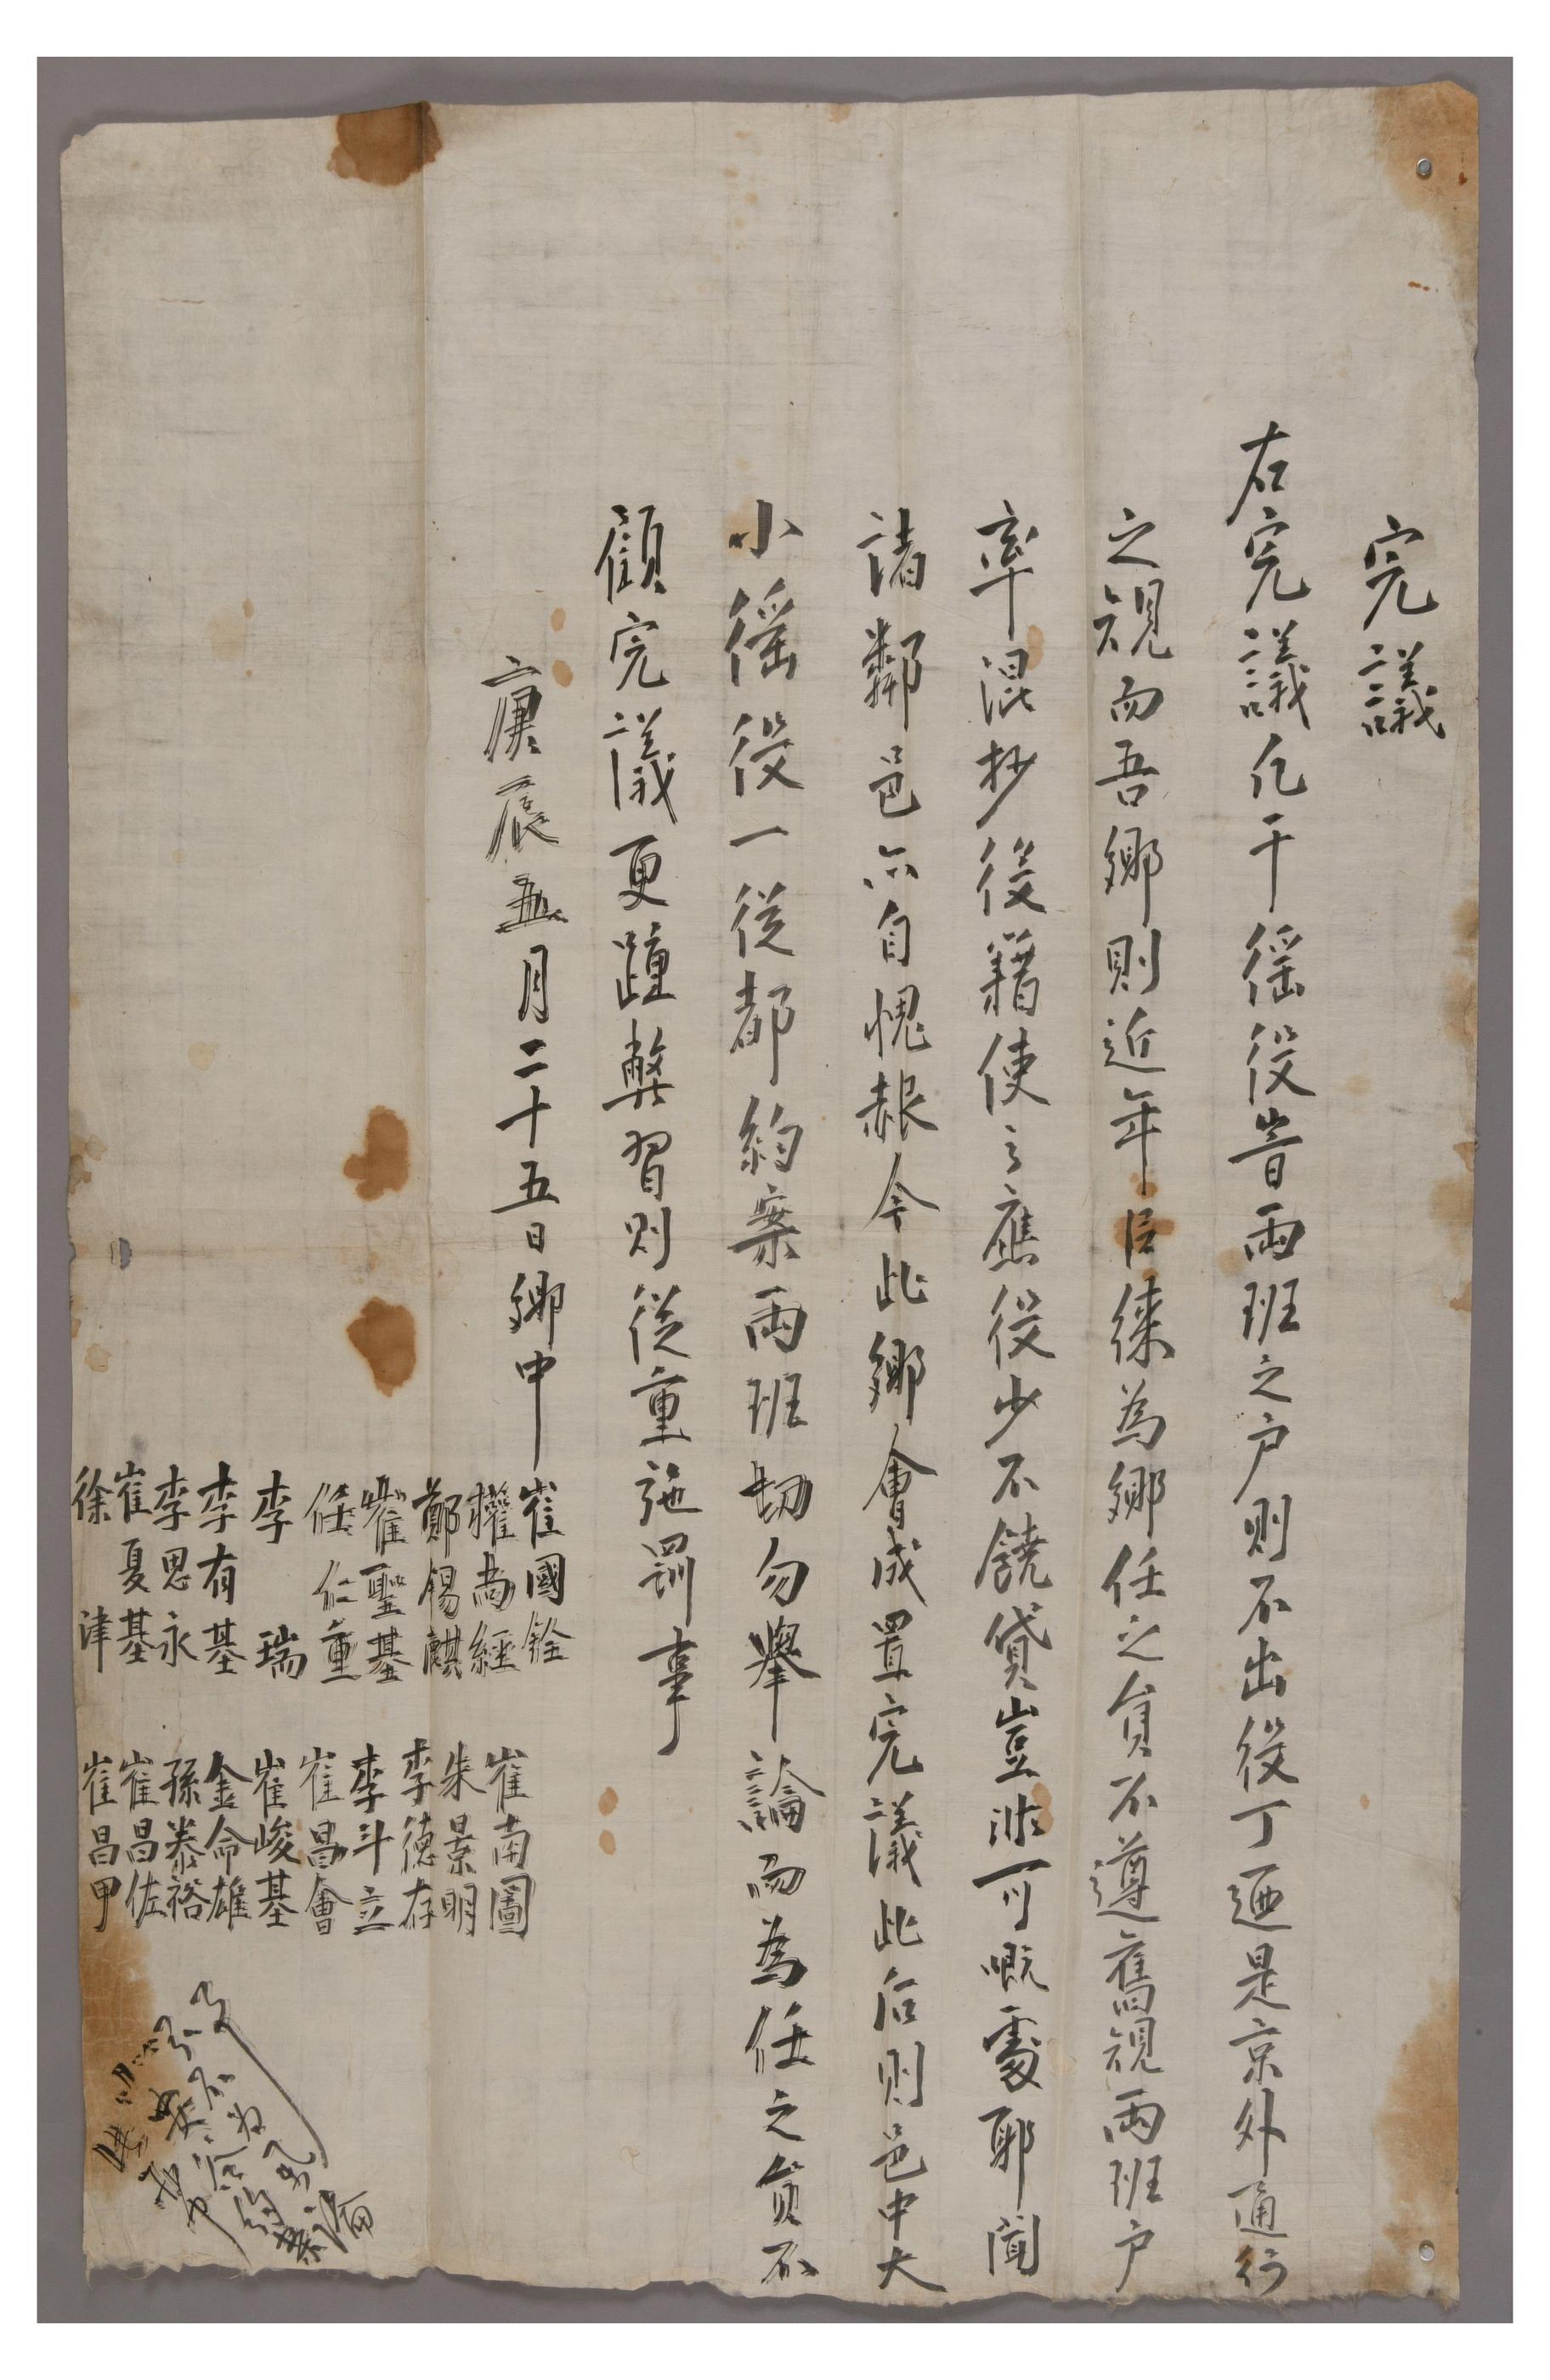 完議
右完議凡干徭役昔兩班之户則不出役丁迺是京外通行
之規而吾鄉則近年以來爲鄉任之員不遵舊規兩班户
率混抄役籍使之應役少不饒貸豈非可嘅處耶聞
諸鄰邑亦自愧赧今此鄉會成置完議此后則邑中大
小徭役一從都約案兩班切勿擧論而爲任之員不
顧完議更踵弊習則從重施罰事
庚辰五月二十五日鄉中
崔國銓
權尙經
鄭錫麒
崔聖基
任仁重
李 瑞
李有基
李思永
崔夏基
徐 津
崔南圖
朱景明
李德存
李斗立
崔昌會
崔峻基
金命雄
孫泰裕
崔昌佐
崔昌甲